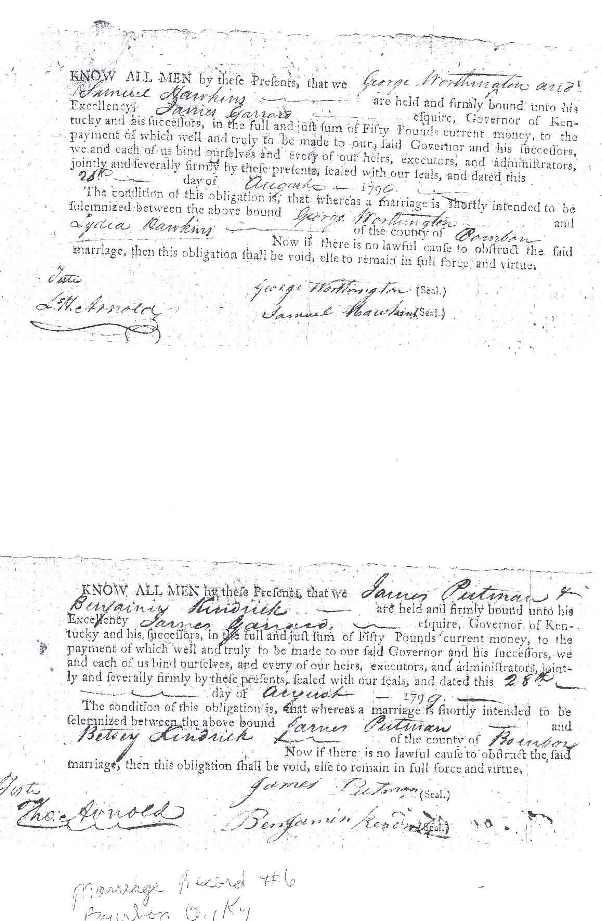 KNOW ALL MEN by theſe Preſents, that we George Worthington and
Samuel Hawkins are held and firmly bound unto his
Excellency James Garrard eſquire, Governor of Ken-
tucky and his ſucceſſors, in the full and juſt ſum of Fifty Pounds current money, to the
payment of which well and truly to be made to our ſaid Governor and his ſucceſſors,
we and each of us bind ourſelves and every of our heirs, executors, and adminiſtrators,
jointly and ſeverally firmly by theſe preſents, ſealed with our ſeals, and dated this
28th day of August 1799.
The condition of this obligation is, that whereas a marriage is ſhortly intended to be
ſolemnized between the above bound George Worthington and
Lydia Hawkins of the county of Bourbon
Now if there is no lawful cauſe to obſtruct the ſaid
marriage, then this obligation ſhall be void, elſe to remain in full force and virtue.
Teste George Worthington (Seal.)
Arnold Samuel Hawkins (Seal.)
KNOW ALL MEN by theſe Preſents, that we James Putman &
Benjamin Kindrick are held and firmly bound unto his
Excellency James Garrard, eſquire, Governor of Ken-
tucky and his ſucceſſors, in the full and juſt ſum of Fifty Pounds current money, to the
payment of which well and truly to be made to our ſaid Governor and his ſucceſſors, we
and each of us bind ourſelves, and every of our heirs, executors, and adminiſtrators, joint-
ly and ſeverally firmly by theſe preſents, ſealed with our ſeals, and dated this 28th
day of August 1799.
The condition of this obligation is, that whereas a marriage is ſhortly intended to be
ſolemnized between the above bound James Putman and
Betsey Kindrick of the county of Bourbon
Now if there is no lawful cauſe to obſtruct the ſaid
marriage, then this obligation ſhall be void, elſe to remain in full force and virtue.
Teste James Putman (Seal.)
Tho: Arnold Benjamin Kendrick (Seal.)
Marriage Record #6
Bourbon Co, Ky